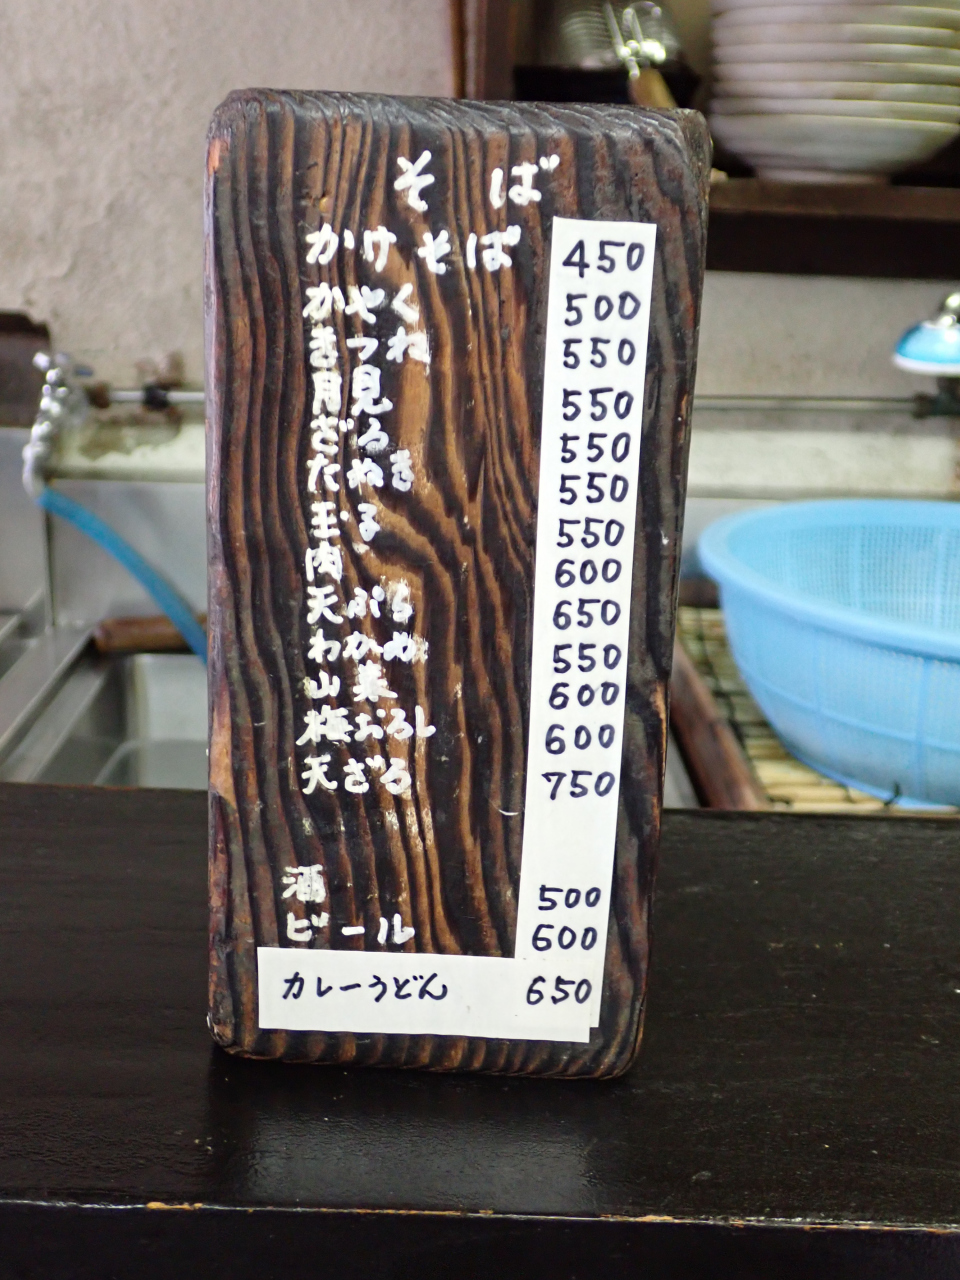 そば
かけそば 450
かやく 500
きつね 550
月見 550
ざる 550
たぬき 550
玉子 550
肉 600
天ぷら 650
わかめ 550
山菜 600
梅おろし 600
天ざる 750
酒 500
ビール 600
カレーうどん 650